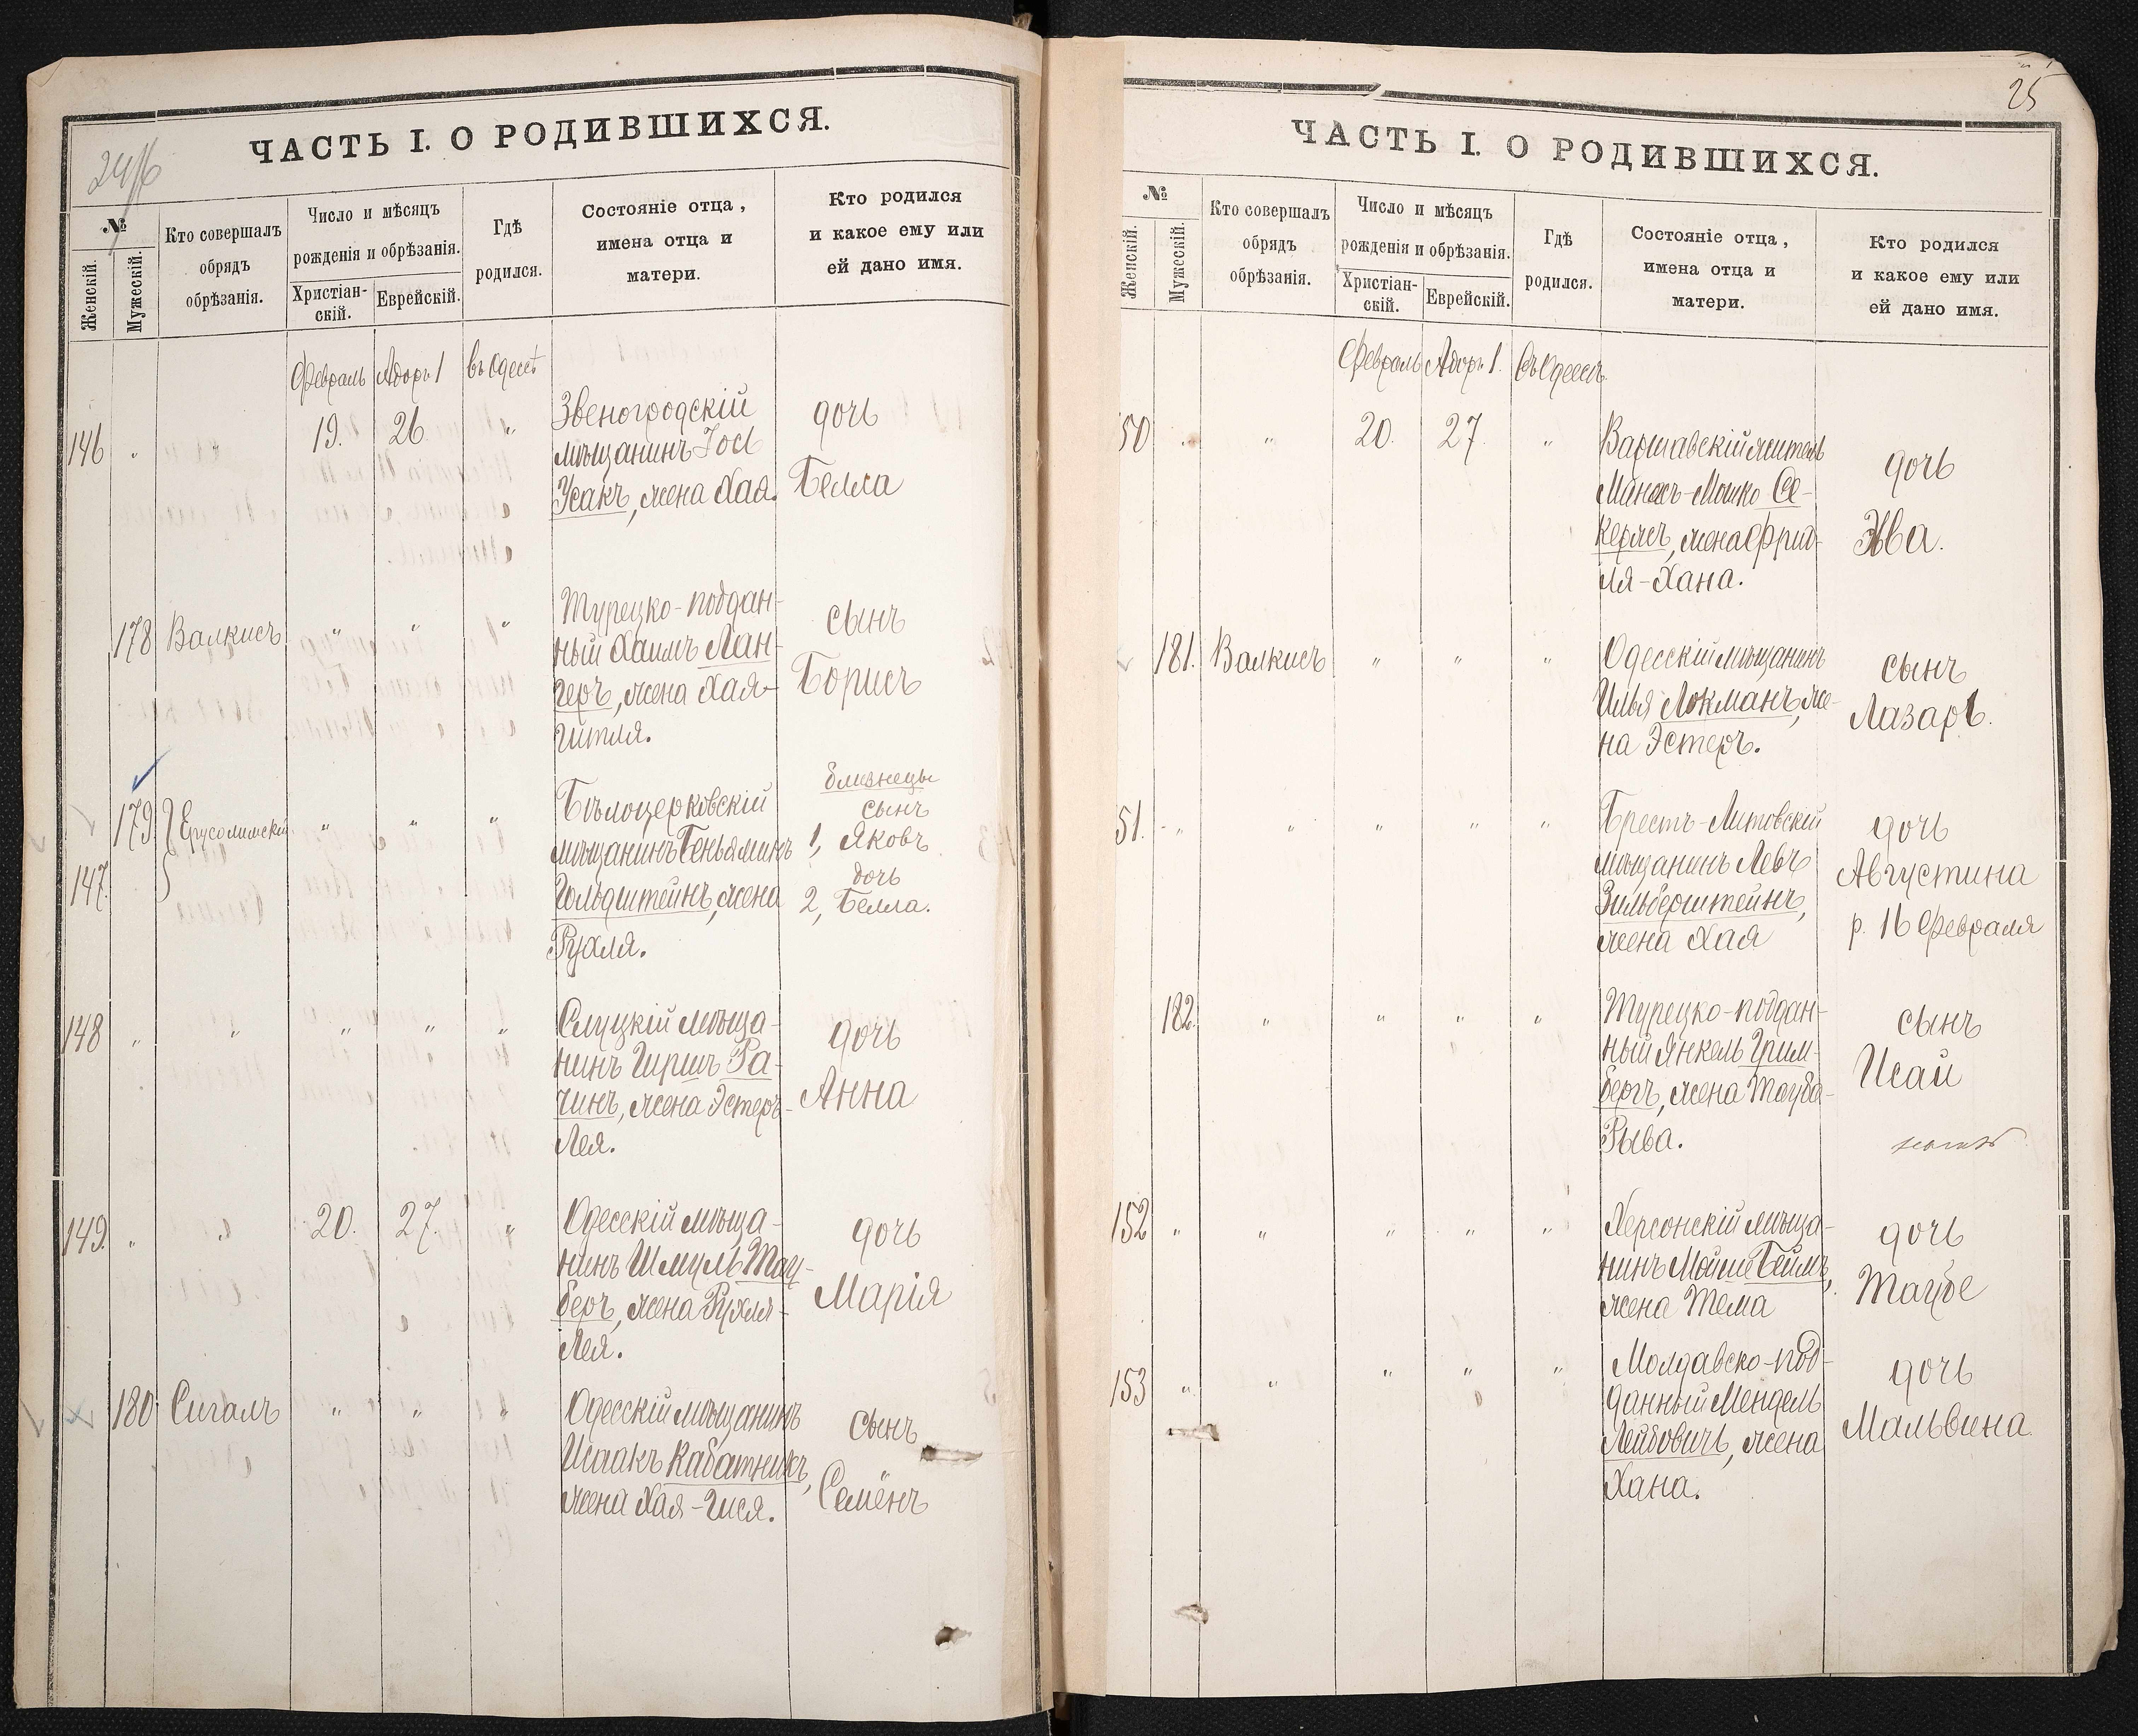 ЧАСТЬ I. О РОДИВШИХСЯ.
№
Женскій.
Мужескій.
Кто совершалъ
обрядъ
обрѣзанія.
Число и мѣсяцъ
рожденія и обрѣзанія.
Христіан-
скій.
Еврейскій.
Гдѣ
родился.
Состояніе отца,
имена отца и
матери.
Кто родился
и какое ему или
ей дано имя.
Февраль Адоръ 1 въ Одессѣ
146 " 19. 26 "
Звеногродскій
мѣщанинъ Іось
Усакъ, жена Хая.
дочь
Белла
178 Валкисъ " " "
Турецко-поддан-
ный Хаимъ Лан-
геръ, жена Хая-
Гитля.
сынъ
Борисъ
179 Ерусолимскій " " "
147.
Бѣлоцерковскій
мѣщанинъ Беньяминъ
Гольдштейнъ, жена
Рухля.
близнецы
сынъ
1, Яковъ
дочь
2, Белла.
148 " " " " "
Слуцкій мѣща-
нинъ Гиршъ Ра-
чинъ, жена Эстеръ-
Лея.
дочь
Анна
149. " " 20. 27. "
Одесскій мѣща-
нинъ Шмуль Тау-
беръ, жена Рухля-
Лея.
дочь
Марія
180 Сигалъ " " "
Одесскій мѣщанинъ
Исаакъ Кабатникъ,
жена Хая-Гися.
сынъ
Семёнъ
25
ЧАСТЬ I. О РОДИВШИХСЯ.
№
Женскій.
Мужескій.
Кто совершалъ
обрядъ
обрѣзанія.
Число и мѣсяцъ
рожденія и обрѣзанія.
Христіан-
скій.
Еврейскій.
Гдѣ
родился.
Состояніе отца,
имена отца и
матери.
Кто родился
и какое ему или
ей дано имя.
Февраль Адоръ 1. Въ Одессѣ
50 " " 20. 27. "
Варшавскій житель
Манасъ-Мошко Се-
кержъ, жена Фрид-
ля-Хана.
дочь
Эва.
181. Валкисъ " " "
Одесскій мѣщанинъ
Илья Локманъ, же-
на Эстеръ.
сынъ
Лазарь.
51. " " " " "
Брестъ-Литовскій
мѣщанинъ Левъ
Зильберштейнъ,
жена Хая
дочь
Августина
р. 16 Февраля
182. " " " "
Турецко-поддан-
ный Янкель Грим-
бергъ, жена Тауба-
Рыва.
сынъ
Исай
152 " " " " "
Херсонскій мѣща-
нинъ Мойше Беймъ,
жена Тема
дочь
Таубе
153 " " " " "
Молдавско-под-
данный Мендель
Лейбовичъ, жена
Хана.
дочь
Мальвина.